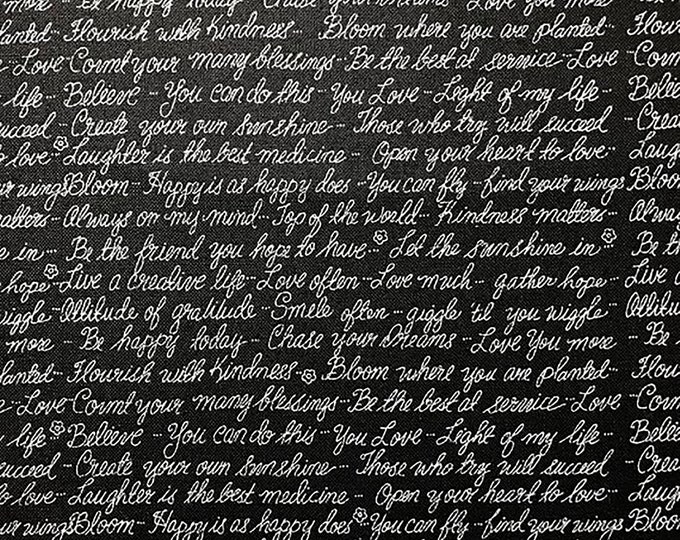 more ·· Be happy today ·· Chase your dreams ·· Love You more ·· Be
planted ·· Flourish with Kindness ·· Bloom where you are planted ·· Flouris
·· Love Count your many blessings ·· Be the best at service ·· Love Count
life ·· Believe ·· You can do this ·· You Love ·· Light of my life ·· Believe
succeed ·· Create your own sunshine ·· Those who try will succeed ·· Crea
to love Laughter is the best medicine ·· Open your heart to love ·· Laug
ur wings Bloom ·· Happy is as happy does ·· You can fly ·· find your wings Bloom
matters ·· Always on my mind ·· Top of the world ·· Kindness matters ·· Alwa
e in ·· Be the friend you hope to have ·· Let the sunshine in Be t
hope Live a creative life ·· Love often ·· Love much ·· gather hope ·· Live a
iggle ·· Attitude of gratitude ·· Smile often ·· giggle 'til you wiggle ·· Attitu
more ·· Be happy today ·· Chase your dreams ·· Love You more ·· Be
planted ·· Flourish with Kindness Bloom where you are planted ·· Flouris
·· Love Count your many blessings ·· Be the best at service ·· Love Count
life Believe ·· You can do this ·· You Love ·· Light of my life ·· Believe
succeed ·· Create your own sunshine ·· Those who try will succeed ·· Crea
to love ·· Laughter is the best medicine ·· Open your heart to love ·· Laug
ur wings Bloom ·· Happy is as happy does You can fly ·· find your wings Bloom